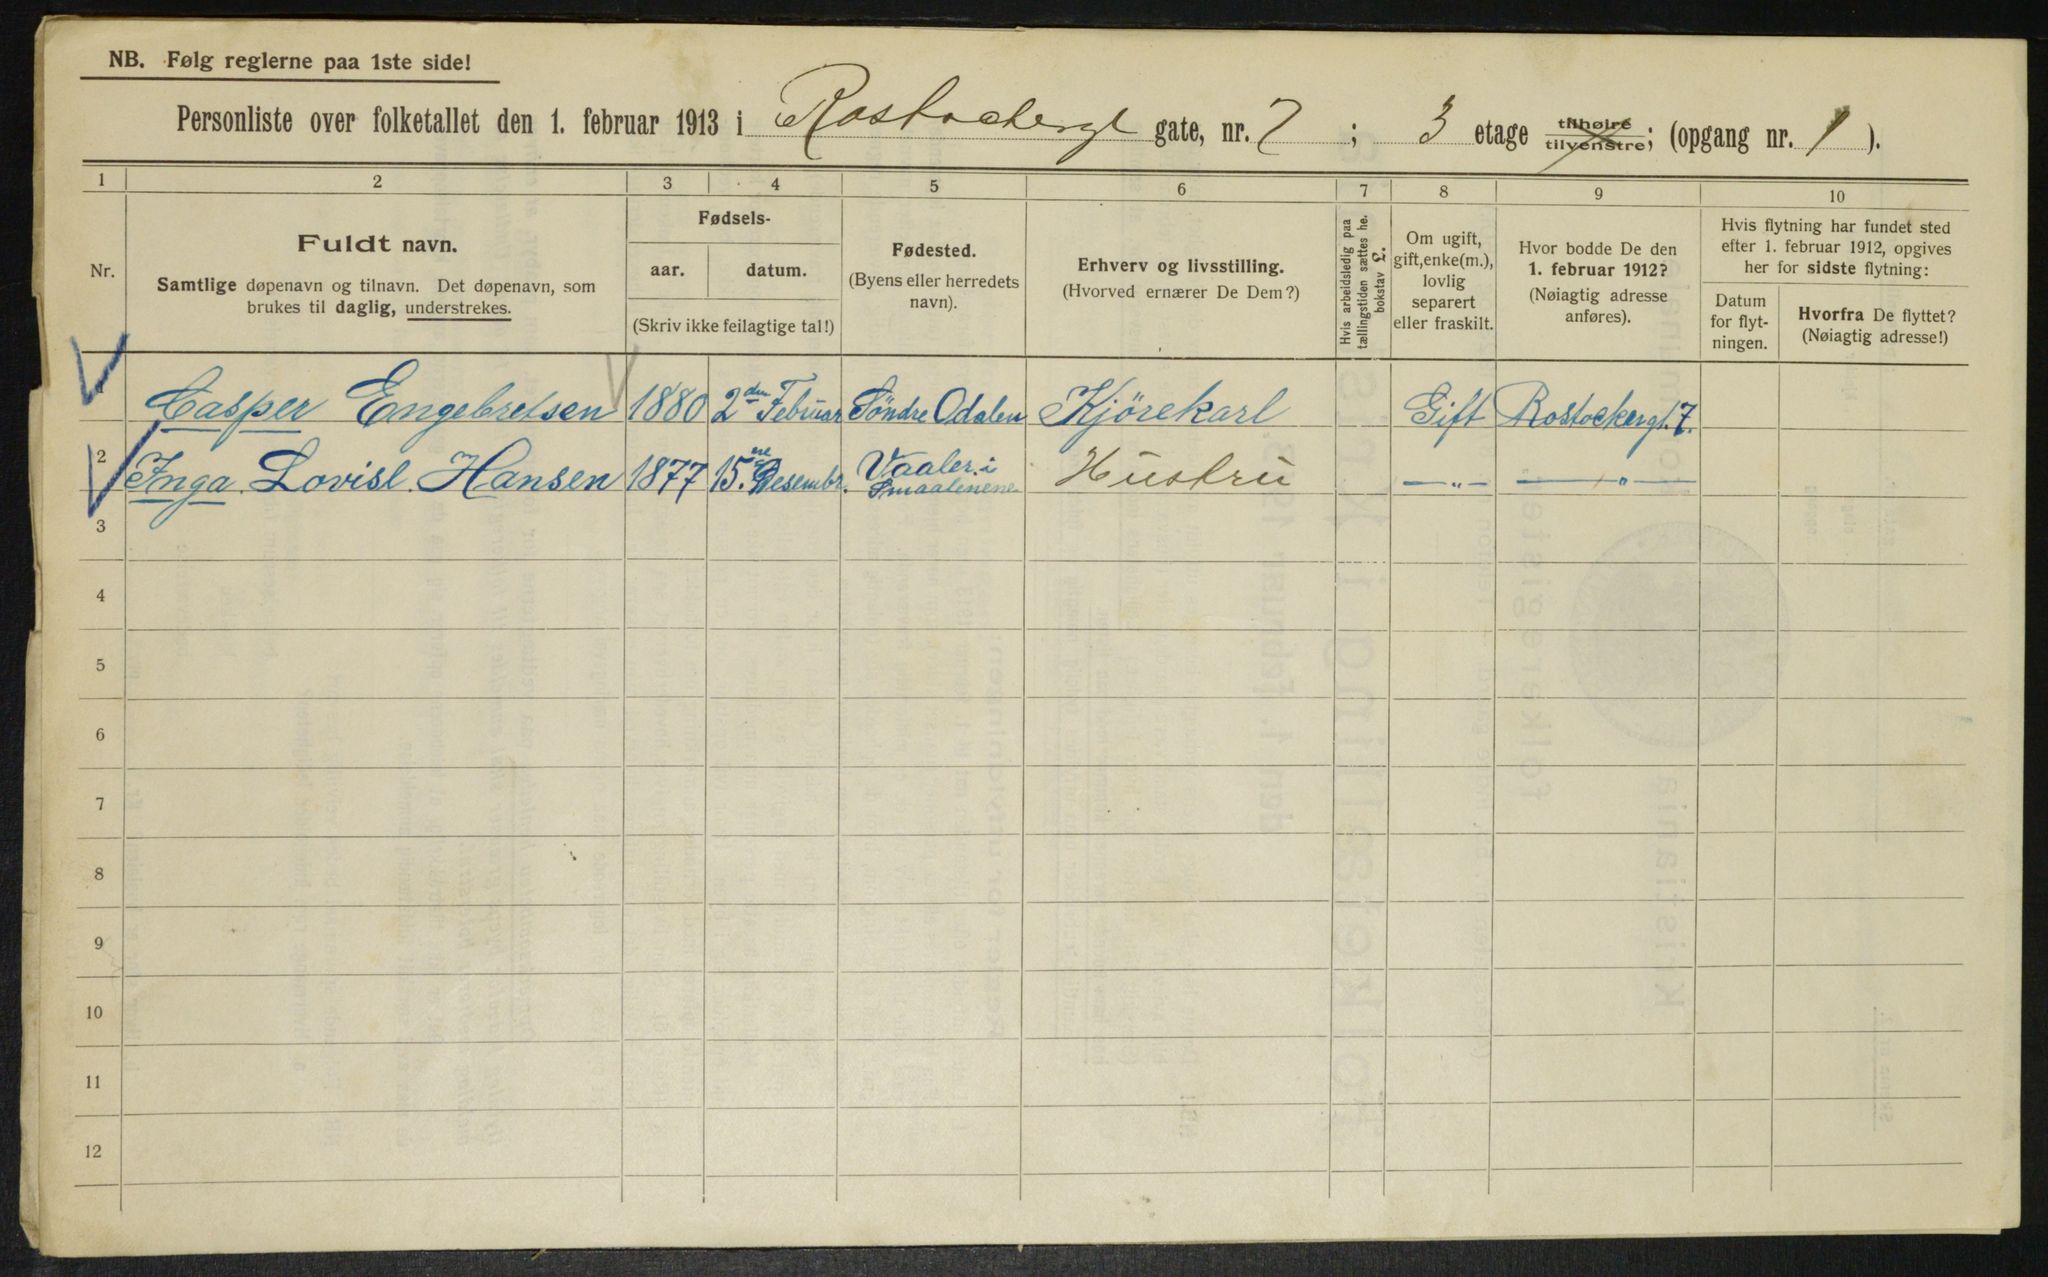 NB. Følg reglerne paa 1ste side!
Personliste over folketallet den 1. februar 1913 i Rostockergt gate, nr. 7 ; 3 etage tilhøire tilvenstre; (opgang nr. 1 ).
1 2 3 4 5 6 7 8 9 10
Nr.
Fuldt navn.
Samtlige døpenavn og tilnavn. Det døpenavn, som
brukes til daglig, understrekes.
Fødsels-
aar. datum.
(Skriv ikke feilagtige tal!)
Fødested.
(Byens eller herredets
navn).
Erhverv og livsstilling.
(Hvorved ernærer De Dem?)
Hvis arbeidsledig paa
tællingstiden sættes he.
bokstav L.
Om ugift,
gift, enke(m.),
lovlig
separert
eller fraskilt.
Hvor bodde De den
1. februar 1912?
(Nøiagtig adresse
anføres).
Hvis flytning har fundet sted
efter 1. februar 1912, opgives
her for sidste flytning:
Datum
for flyt-
ningen.
Hvorfra De flyttet?
(Nøiagtig adresse!)
Casper Engebretsen 1880 2den Februar Söndre Odalen Kjörekarl Gift Rostockergt. 7.
2 Inga Lovisl. Hansen 1877 15.ne Desembr. Vaaler i Smaalenene Hustru —〃— —〃—
3
4
5
6
7
8
9
10
11
12